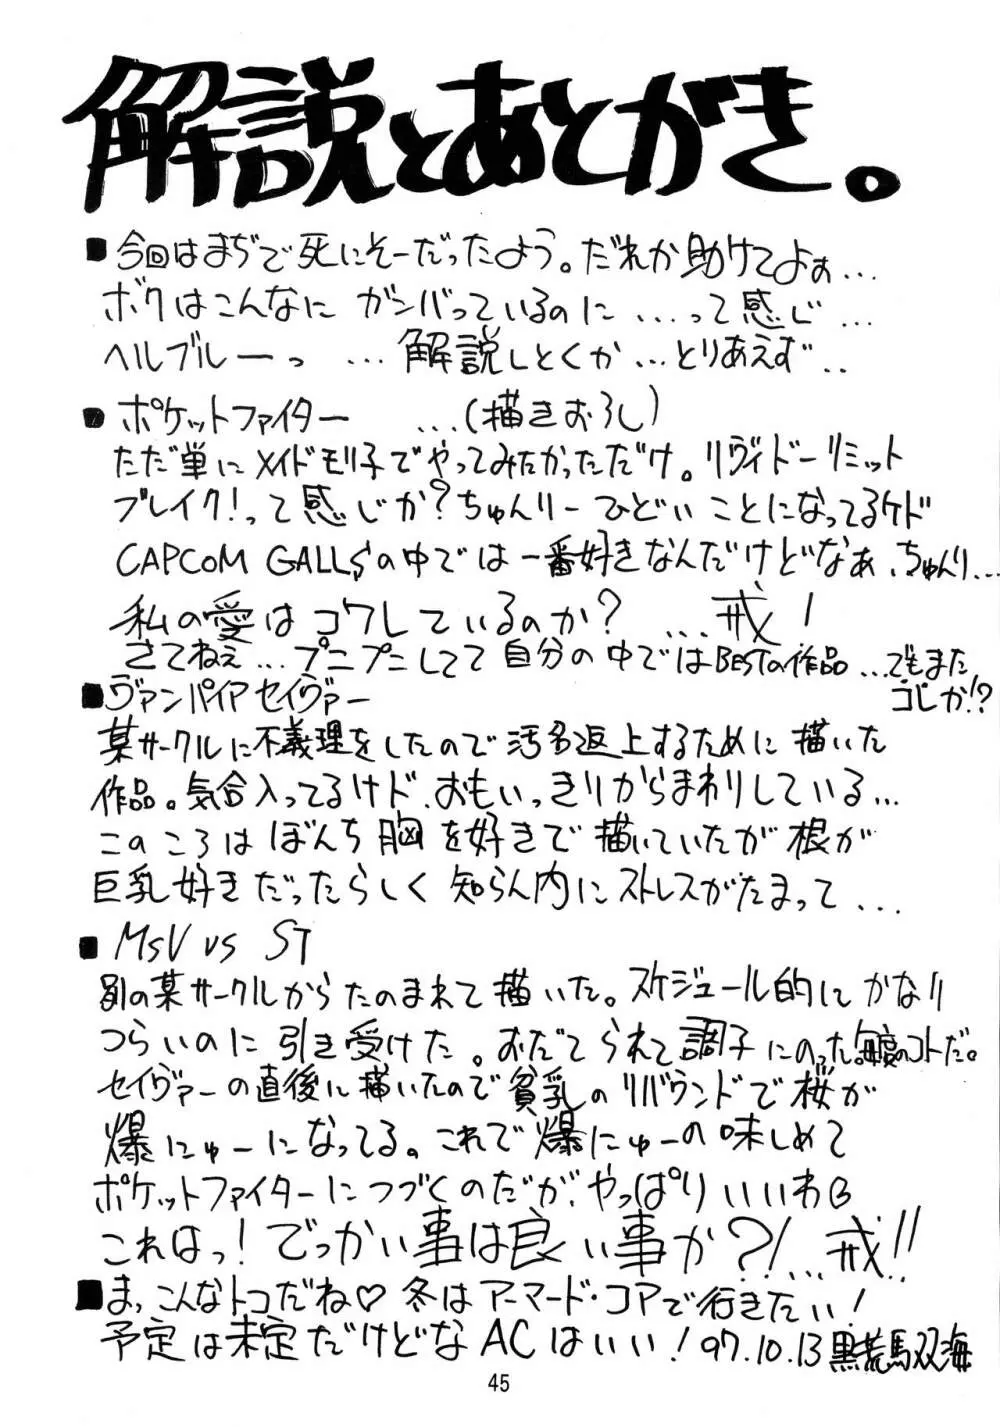 解説とあとがき。
■今回はまぢで死にそーだったよう。だれか助けてよぉ…
ボクはこんなに ガンバっているのに …って感じ…
ヘルブルーっ …解説しとくか…とりあえず‥
■ポケットファイター …(描きおろし)
ただ単にメイドモリ子でやってみたかっただけ。リヴィドーリミット
ブレイク!って感じか?ちゅんりー ひどい ことになってるケド
CAPCOM GALLSの中では一番好きなんだけどなぁ、ちゅんり…
私の愛はコワレているのか? …戒!
さてねぇ…プニプニしてて 自分の中ではBESTの作品…でもまた
コレか!?
■ヴァンパイアセイヴァー
某サークルに不義理をしたので汚名返上するために描いた
作品。気合入ってるけド、おもいっきりからまわりしている…
このころは ぼんち胸を好きで 描いていたが 根が
巨乳好きだったらしく 知らん内にストレスがたまって…
■MSV vs ST
別の某サークルからたのまれて描いた。スケジュール的にかなり
つらいのに 引き受けた。おだてられて調子にのった。毎度のコトだ。
セイヴァーの直後に描いたので貧乳のリバウンドで桜が
爆にゅーになってる。これで爆にゅーの味しめて
ポケットファイターにつづくのだが、やっぱりいいわB
これはっ!でっかい事は良い事か?!…戒!!
■まっこんなトコだね♡ 冬はアーマード・コアで行きたい!
予定は未定だけどな ACはいい! 97.10.13 黒荒馬双海
45